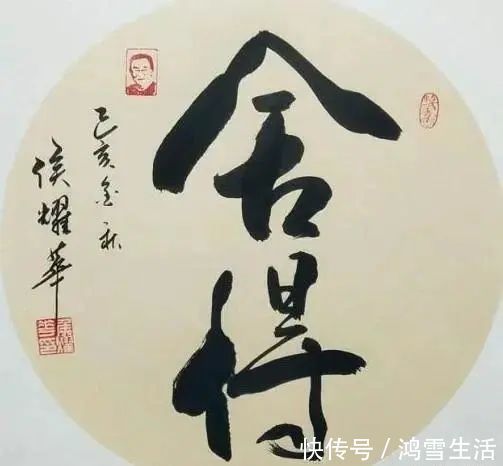 舍得
己亥金秋
侯耀华
快传号/鸿雪生活